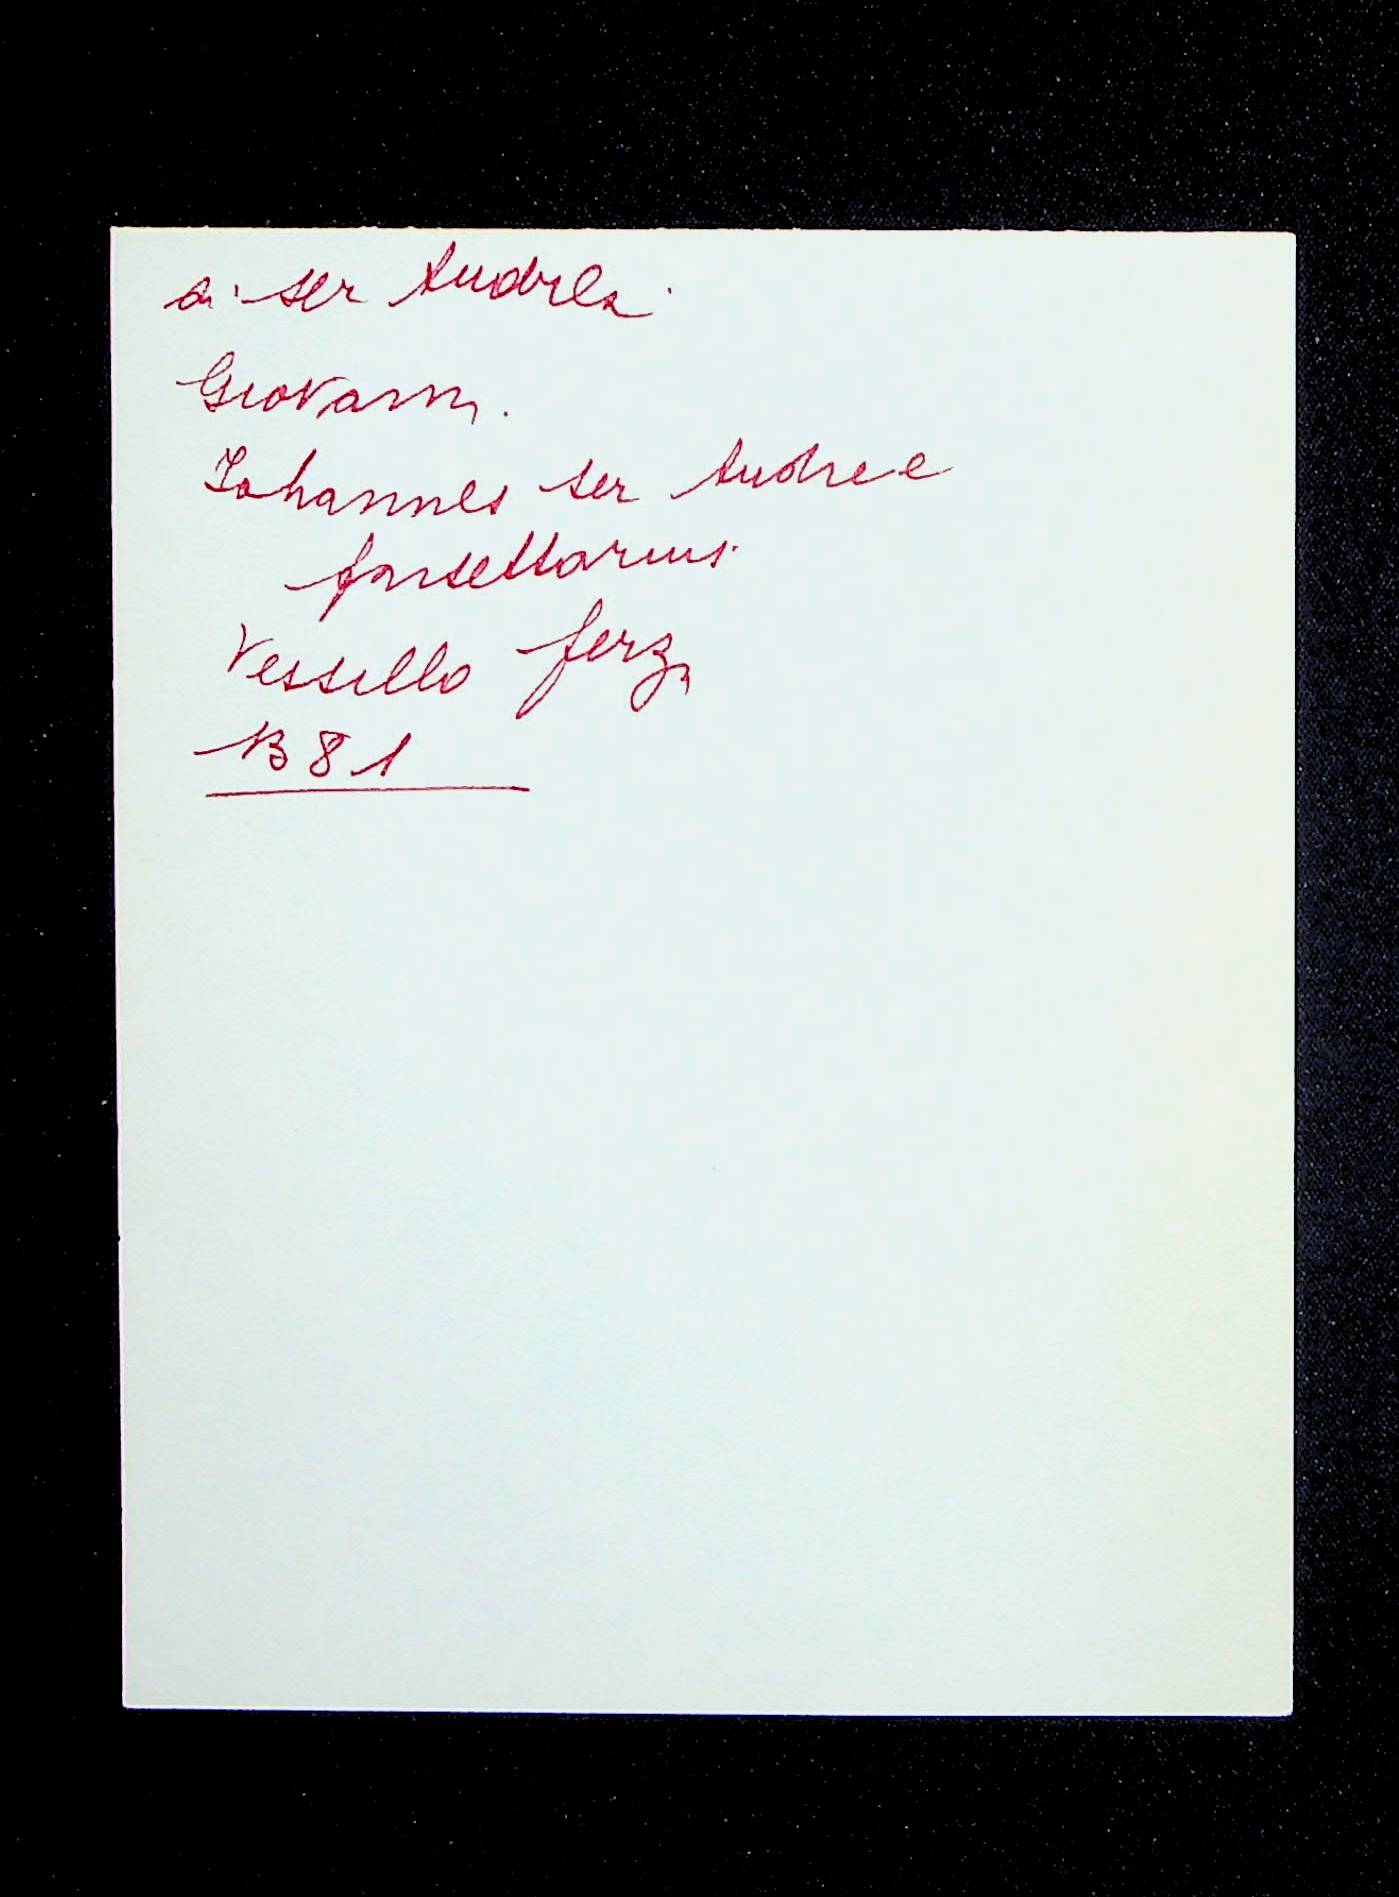 di ser Andrea.
Giovanni.
Iohannes ser Andree
farsettarius.
Vessillo ferz
B 81